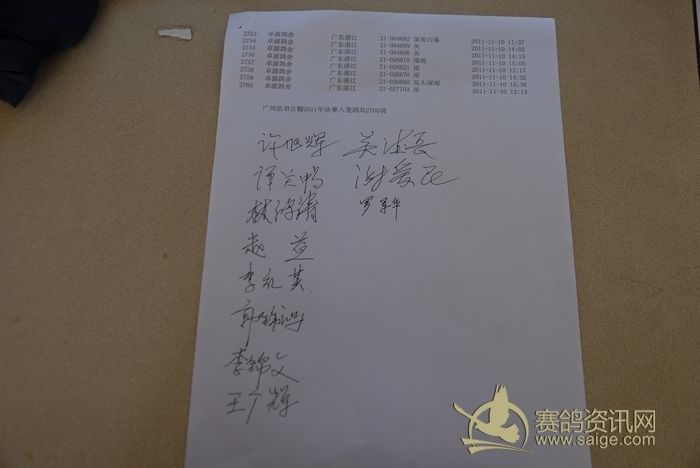 2753 卓源鸽舍 广东湛江 21-004682 深雨白条 2011-11-10 11:37
2754 卓源鸽舍 广东湛江 21-004689 灰 2011-11-10 14:02
2755 卓源鸽舍 广东湛江 21-004698 灰 2011-11-10 14:15
2756 卓源鸽舍 广东湛江 21-026619 深雨 2011-11-10 15:05
2757 卓源鸽舍 广东湛江 21-026621 雨 2011-11-10 12:17
2758 卓源鸽舍 广东湛江 21-026670 雨 2011-11-10 14:32
2759 卓源鸽舍 广东湛江 21-026696 花头深雨 2011-11-10 15:38
2760 卓源鸽舍 广东湛江 21-027703 雨 2011-11-10 12:13
广州浩羽公棚2011年决赛入笼鸽共2760羽
许旭辉
谭兴鸭 谢爱民
罗军华
赵益
李锦文
王广辉
赛鸽资讯网
www.saige.com